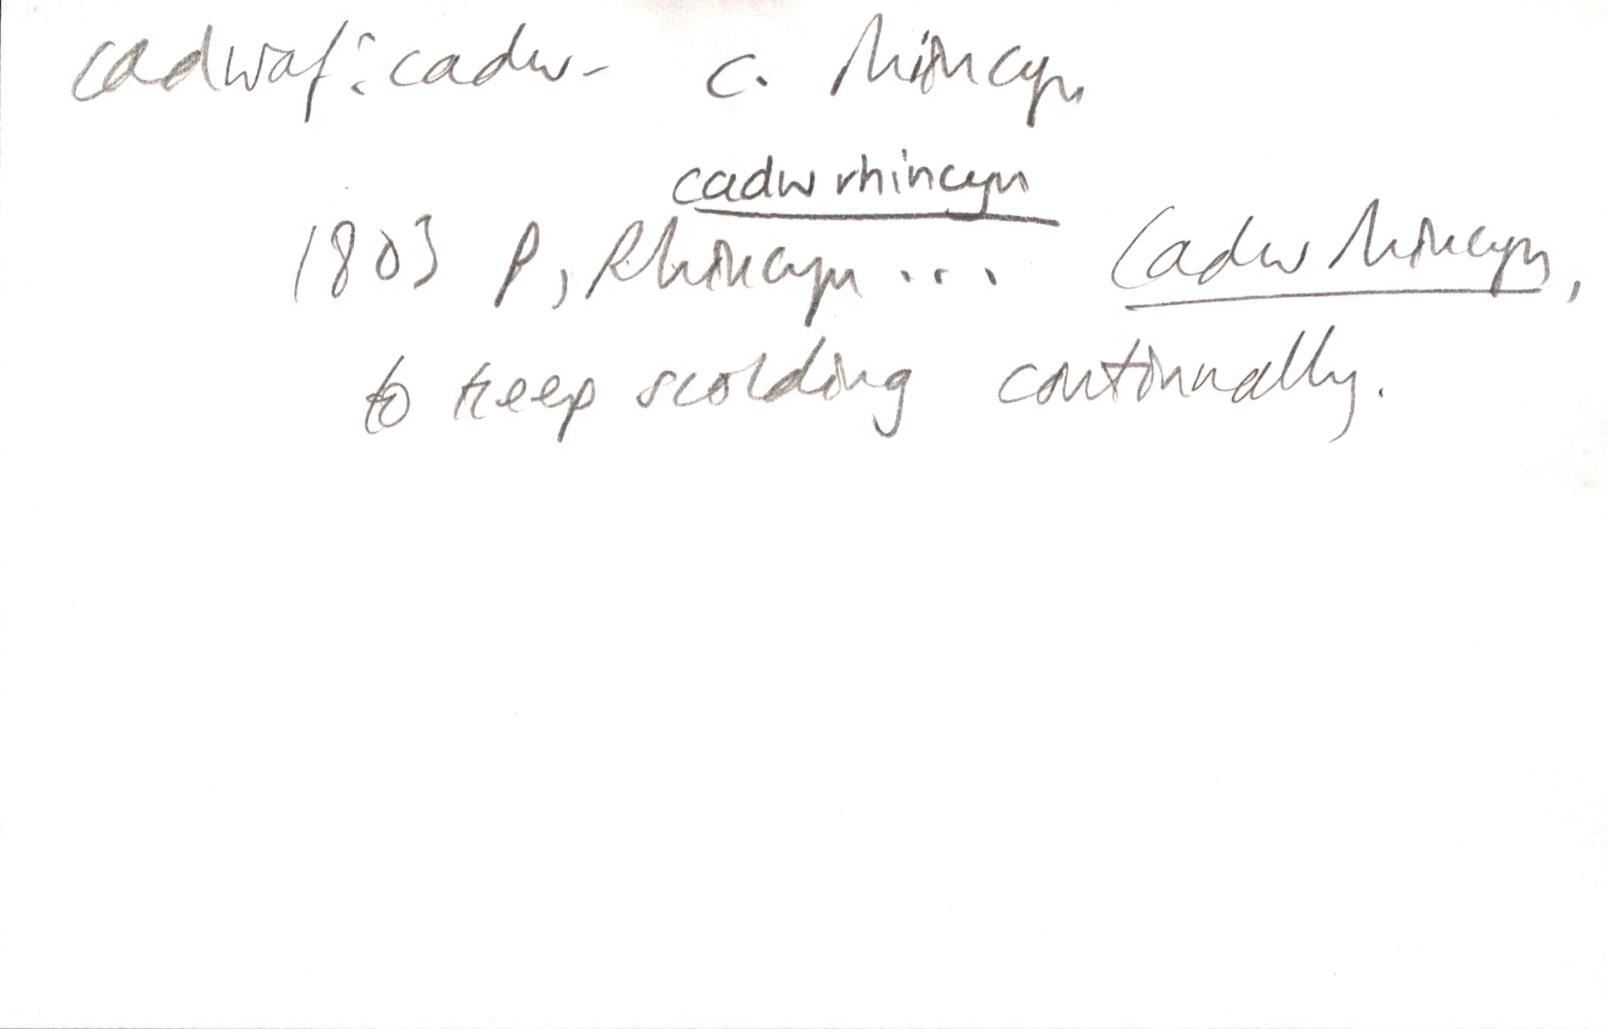 cadwaf: cadw- c. rhincyn
cadw rhincyn
1803 P, Rhincyn ... Cadw rhincyn,
to keep scolding continually.